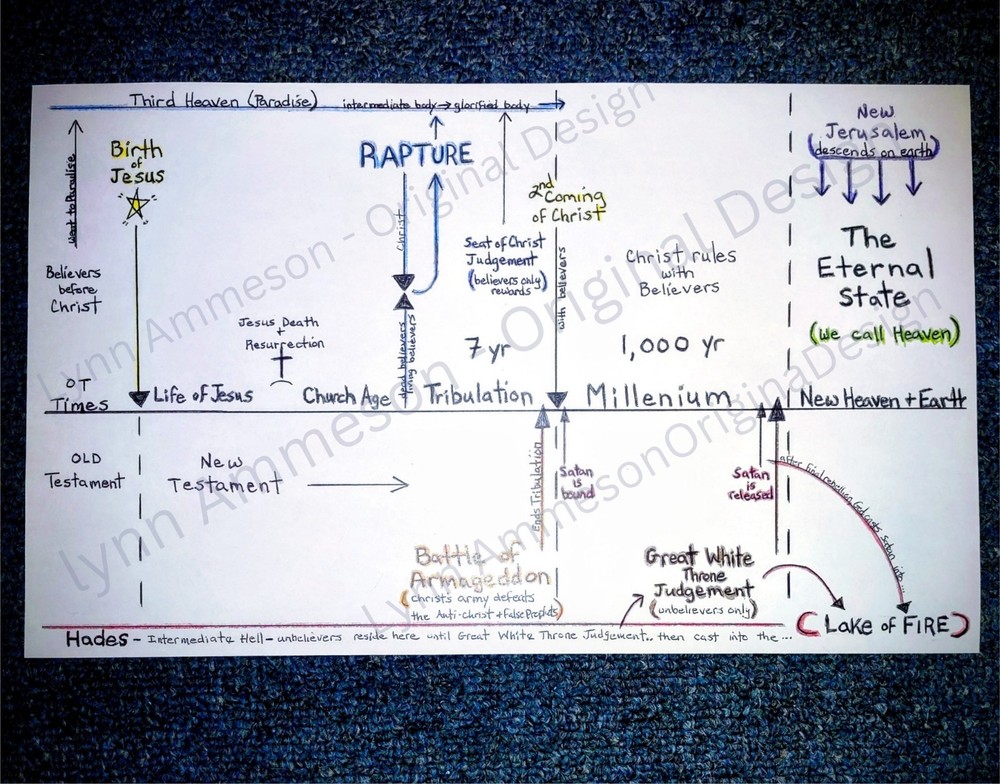 Third Heaven (Paradise) intermediate body → glorified body →
went to Paradise
Birth
of
Jesus
Believers
before
Christ
OT
Times
RAPTURE
Christ
dead believers
living believers
Jesus Death
+
Resurrection
Seat of Christ
Judgement
(believers only)
rewards
2nd Coming
of Christ
with believers
Christ rules
with
Believers
New
Jerusalem
(descends on earth)
The
Eternal
State
(we call Heaven)
7 yr
1,000 yr
Life of Jesus
Church Age
Tribulation
Millenium
New Heaven + Earth
OLD
Testament
New
Testament
Ends Tribulation
Satan
is
bound
Satan
is
released
after final rebellion God casts Satan into...
Battle of
Armageddon
(Christs army defeats
the Anti-christ + False Prophets)
Great White
Throne
Judgement
(unbelievers only)
Hades - Intermediate Hell - unbelievers reside here until Great White Throne Judgement.. then cast into the ...
(Lake of FIRE)
Lynn Ammeson - Original Design
Lynn Ammeson - Original Design
Lynn AmmesonOriginaDesign